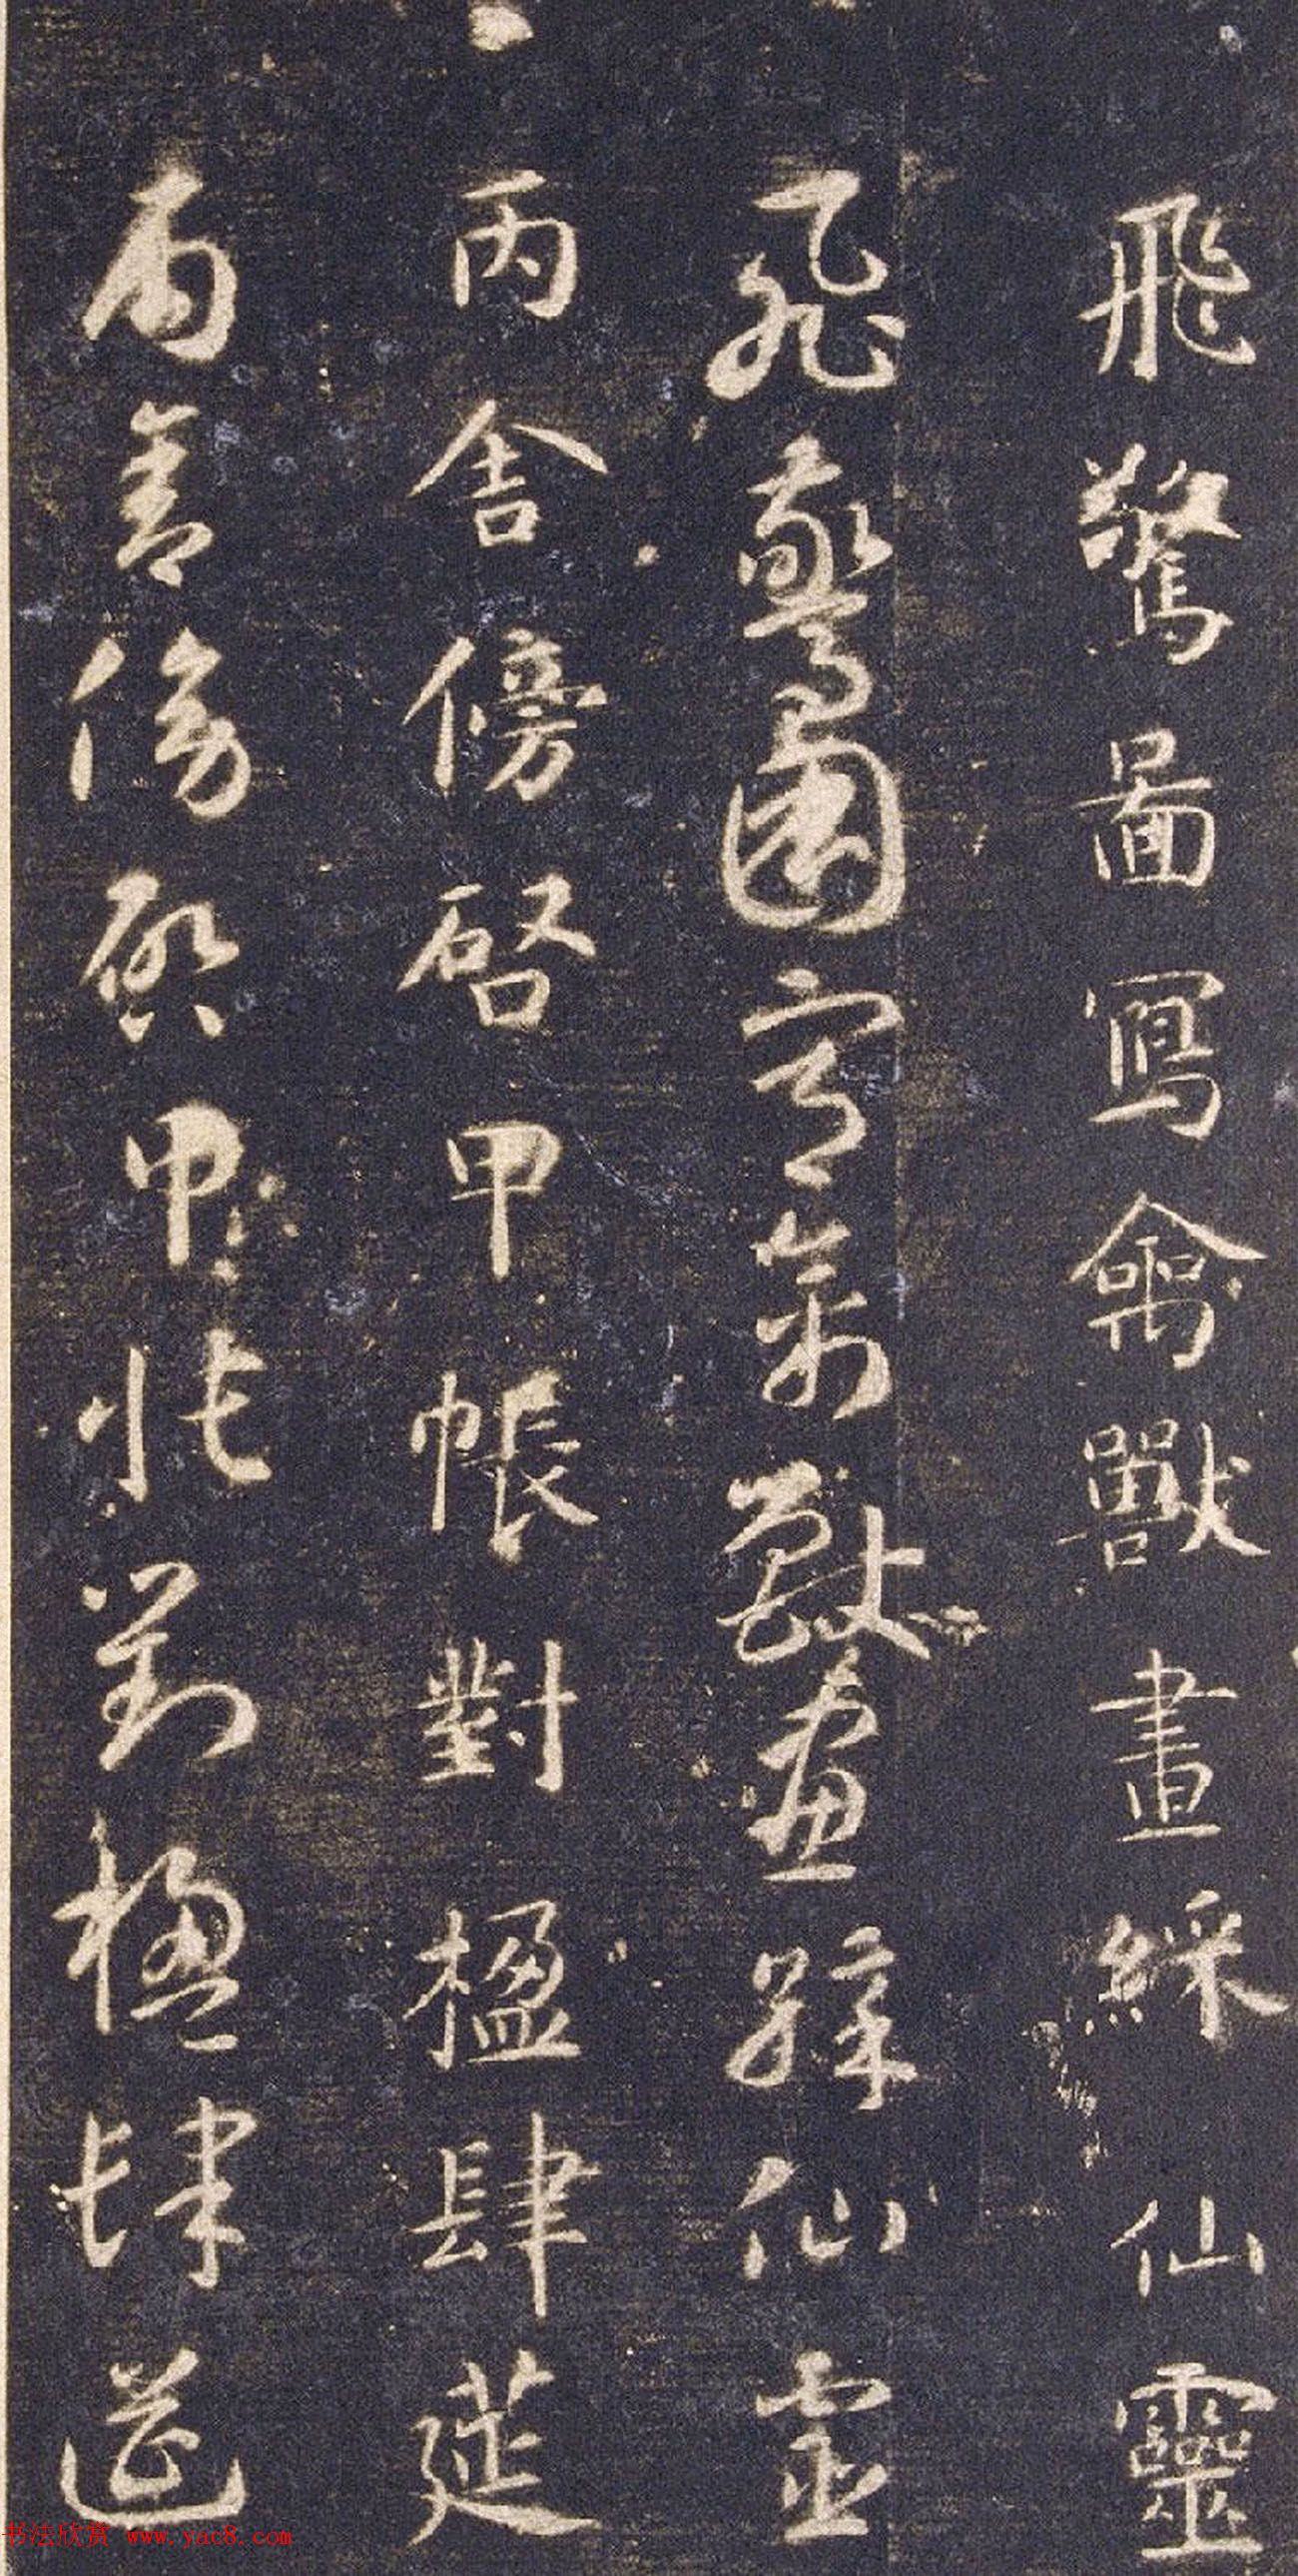 飛驚圖寫禽獸畫綵仙靈
飛驚圖寫禽獸畫綵仙靈
丙舍傍啓甲帳對楹肆莚
丙舍傍啓甲帳對楹肆莚
书法欣赏 www.yac8.com